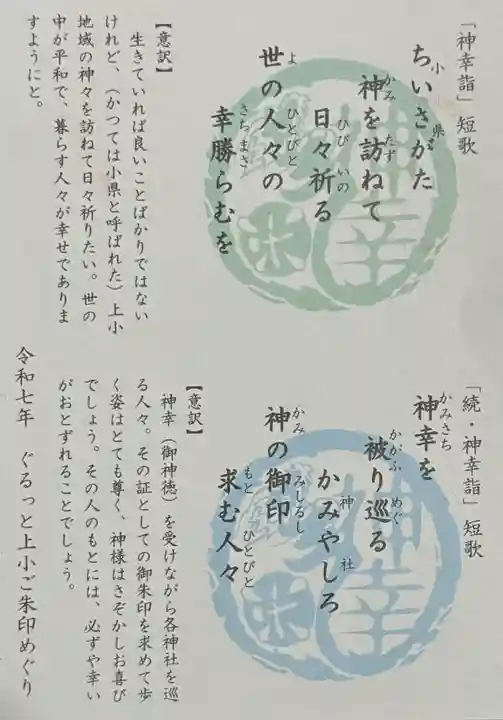 「神幸詣」短歌
ちいさがた
小県
神を訪ねて
かみ たず
日々祈る
ひび いの
世の人々の
よ ひとびと
幸勝らむを
さちまさ
【意訳】
生きていれば良いことばかりではない
けれど、（かつては小県と呼ばれた）上小
地域の神々を訪ねて日々祈りたい。世の
中が平和で、暮らす人々が幸せでありま
すようにと。
「続・神幸詣」短歌
神幸を
かみさち
被り巡る
かがふ めぐ
かみやしろ
神社
神の御印
かみ みしるし
求む人々
もと ひとびと
【意訳】
神幸（御神徳）を受けながら各神社を巡
る人々。その証としての御朱印を求めて歩
く姿はとても尊く、神様はさぞかしお喜び
でしょう。その人のもとには、必ずや幸い
がおとずれることでしょう。
令和七年 ぐるっと上小ご朱印めぐり